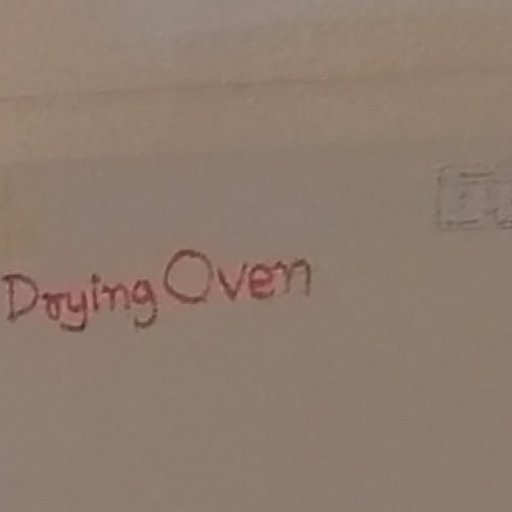 Drying Oven